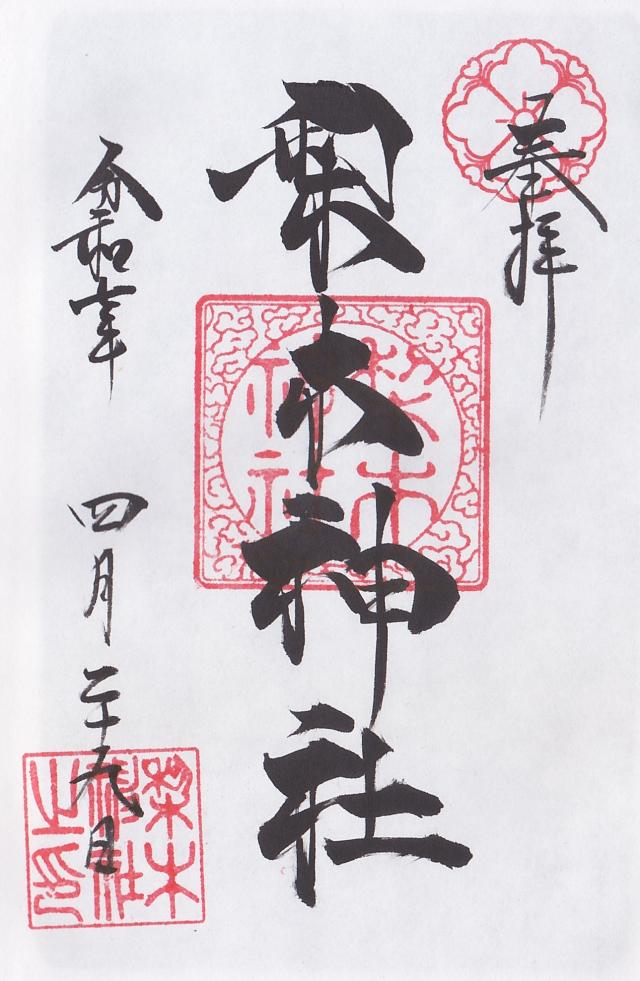 奉拝
梨木神社
令和 年 四月二十九日
梨木
神社
梨木
神社
之印